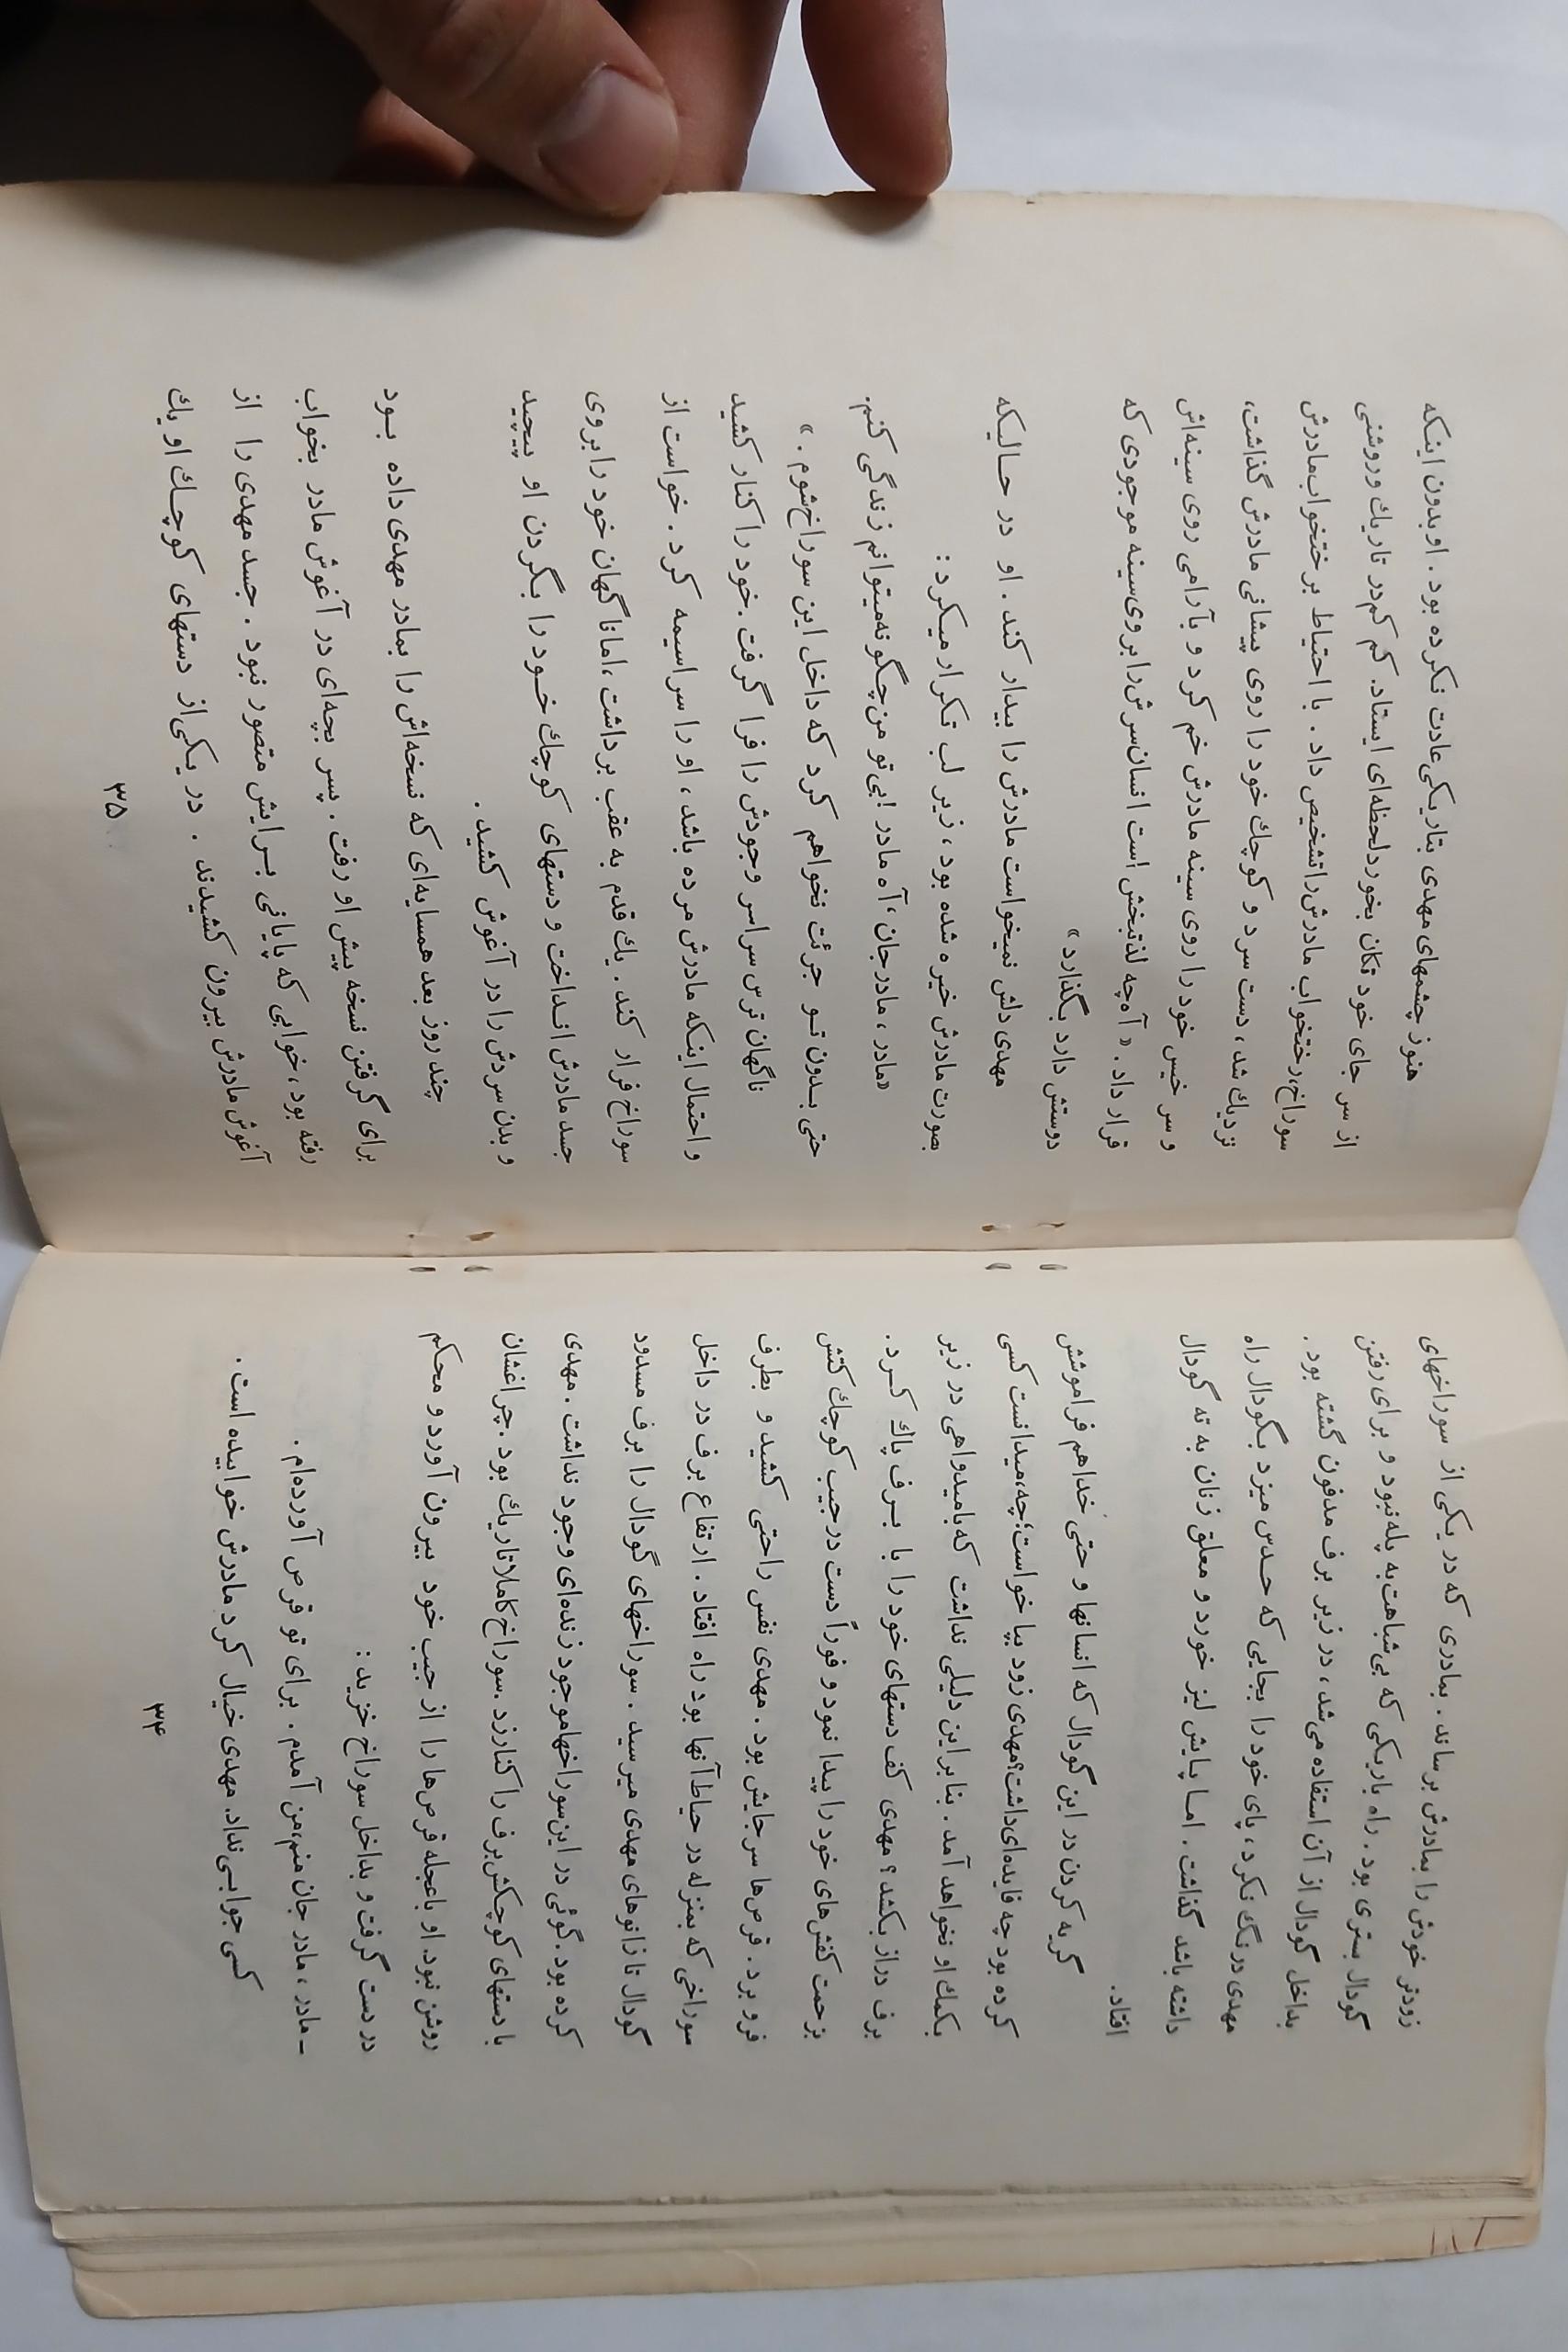 زودتر خودش را بمادرش برساند. بمادری که در یکی از سوراخهای
گودال بستری بود. راه باریکی که بی‌شباهت به پله نبود و برای رفتن
بداخل گودال از آن استفاده می‌شد، در زیر برف مدفون گشته بود.
مهدی درنگ نکرد، پای خود را بجایی که حدس میزد بگودال راه
داشته باشد گذاشت. اما پایش لیز خورد و معلق زنان به ته گودال
افتاد.
گریه کردن در این گودال که انسانها و حتی خدا هم فراموشش
کرده بود چه فایده‌ای داشت؟ مهدی زود بپا خواست؛ چه، میدانست کسی
بکمک او نخواهد آمد. بنابراین دلیلی نداشت که بامید واهی در زیر
برف دراز بکشد؟ مهدی کف دستهای خود را با برف پاك کرد.
بزحمت کفش‌های خود را پیدا نمود و فوراً دست در جیب کوچك کتش
فرو برد. قرص‌ها سر جایش بود. مهدی نفس راحتی کشید و بطرف
سوراخی که بمنزله در حیاط آنها بود راه افتاد. ارتفاع برف در داخل
گودال تا زانوهای مهدی میرسید. سوراخهای گودال را برف مسدود
کرده بود. گوئی در این سوراخها موجود زنده‌ای وجود نداشت. مهدی
با دستهای کوچکش برف را کنار زد. سوراخ کاملا تاریك بود. چراغشان
روشن نبود. او با عجله قرص‌ها را از جیب خود بیرون آورد و محکم
در دست گرفت و بداخل سوراخ خزید:
ـ مادر، مادر جان منم، من آمدم. برای تو قرص آورده‌ام.
کسی جوابی نداد. مهدی خیال کرد مادرش خوابیده است.
۳۴
هنوز چشمهای مهدی بتاریکی عادت نکرده بود. او بدون اینکه
از سر جای خود تکان بخورد لحظه‌ای ایستاد. کم کم در تاریك و روشنی
سوراخ، رختخواب مادرش را تشخیص داد. با احتیاط بر ختخواب مادرش
نزدیك شد، دست سرد و کوچك خود را روی پیشانی مادرش گذاشت،
و سر خیس خود را روی سینه مادرش خم کرد و بآرامی روی سینه‌اش
قرار داد. «آه چه لذتبخش است انسان سرش را بروی سینه موجودی که
دوستش دارد بگذارد»
مهدی دلش نمیخواست مادرش را بیدار کند. او در حالیکه
بصورت مادرش خیره شده بود، زیر لب تکرار میکرد:
«مادر، مادر جان، آه مادر! بی تو من چگونه میتوانم زندگی کنم.
حتی بدون تو جرئت نخواهم کرد که داخل این سوراخ شوم.»
ناگهان ترس سراسر وجودش را فرا گرفت. خود را کنار کشید
و احتمال اینکه مادرش مرده باشد، او را سراسیمه کرد. خواست از
سوراخ فرار کند. یك قدم به عقب برداشت، اما ناگهان خود را بروی
جسد مادرش انداخت و دستهای کوچك خود را بگردن او پیچید
و بدن سردش را در آغوش کشید.
چند روز بعد همسایه‌ای که نسخه‌اش را بمادر مهدی داده بود
برای گرفتن نسخه پیش او رفت. پسر بچه‌ای در آغوش مادر بخواب
رفته بود، خوابی که پایانی برایش متصور نبود. جسد مهدی را از
آغوش مادرش بیرون کشیدند. در یکی از دستهای کوچك او یك
۳۵